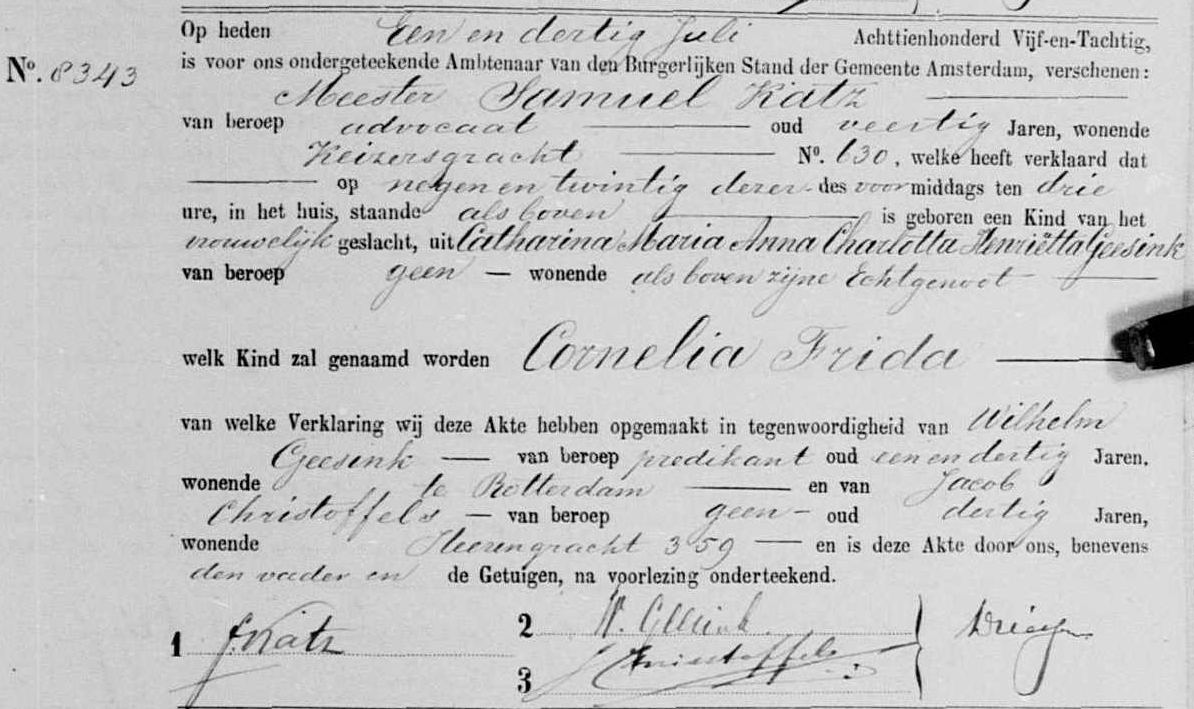 Op heden Een en dertig Juli Achttienhonderd Vijf-en-Tachtig,
No. 8343
is voor ons ondergeteekende Ambtenaar van den Burgerlijken Stand der Gemeente Amsterdam, verschenen:
Meester Samuel Katz
van beroep advocaat oud veertig Jaren, wonende
Keizersgracht No. 630, welke heeft verklaard dat
op negen en twintig dezer des voormiddags ten drie
ure, in het huis, staande als boven is geboren een Kind van het
vrouwelijk geslacht, uit Catharina Maria Anna Charlotta Henriëtta Geesink
van beroep geen — wonende als boven zijne Echtgenoot
welk Kind zal genaamd worden Cornelia Frida
van welke Verklaring wij deze Akte hebben opgemaakt in tegenwoordigheid van Wilhelm
Geesink — van beroep predikant oud een en dertig Jaren,
wonende te Rotterdam en van Jacob
Christoffels — van beroep geen — oud dertig Jaren,
wonende Heerengracht 359 — en is deze Akte door ons, benevens
den vader en de Getuigen, na voorlezing onderteekend.
1 S. Katz
2 W. Geesink
3 J Christoffels